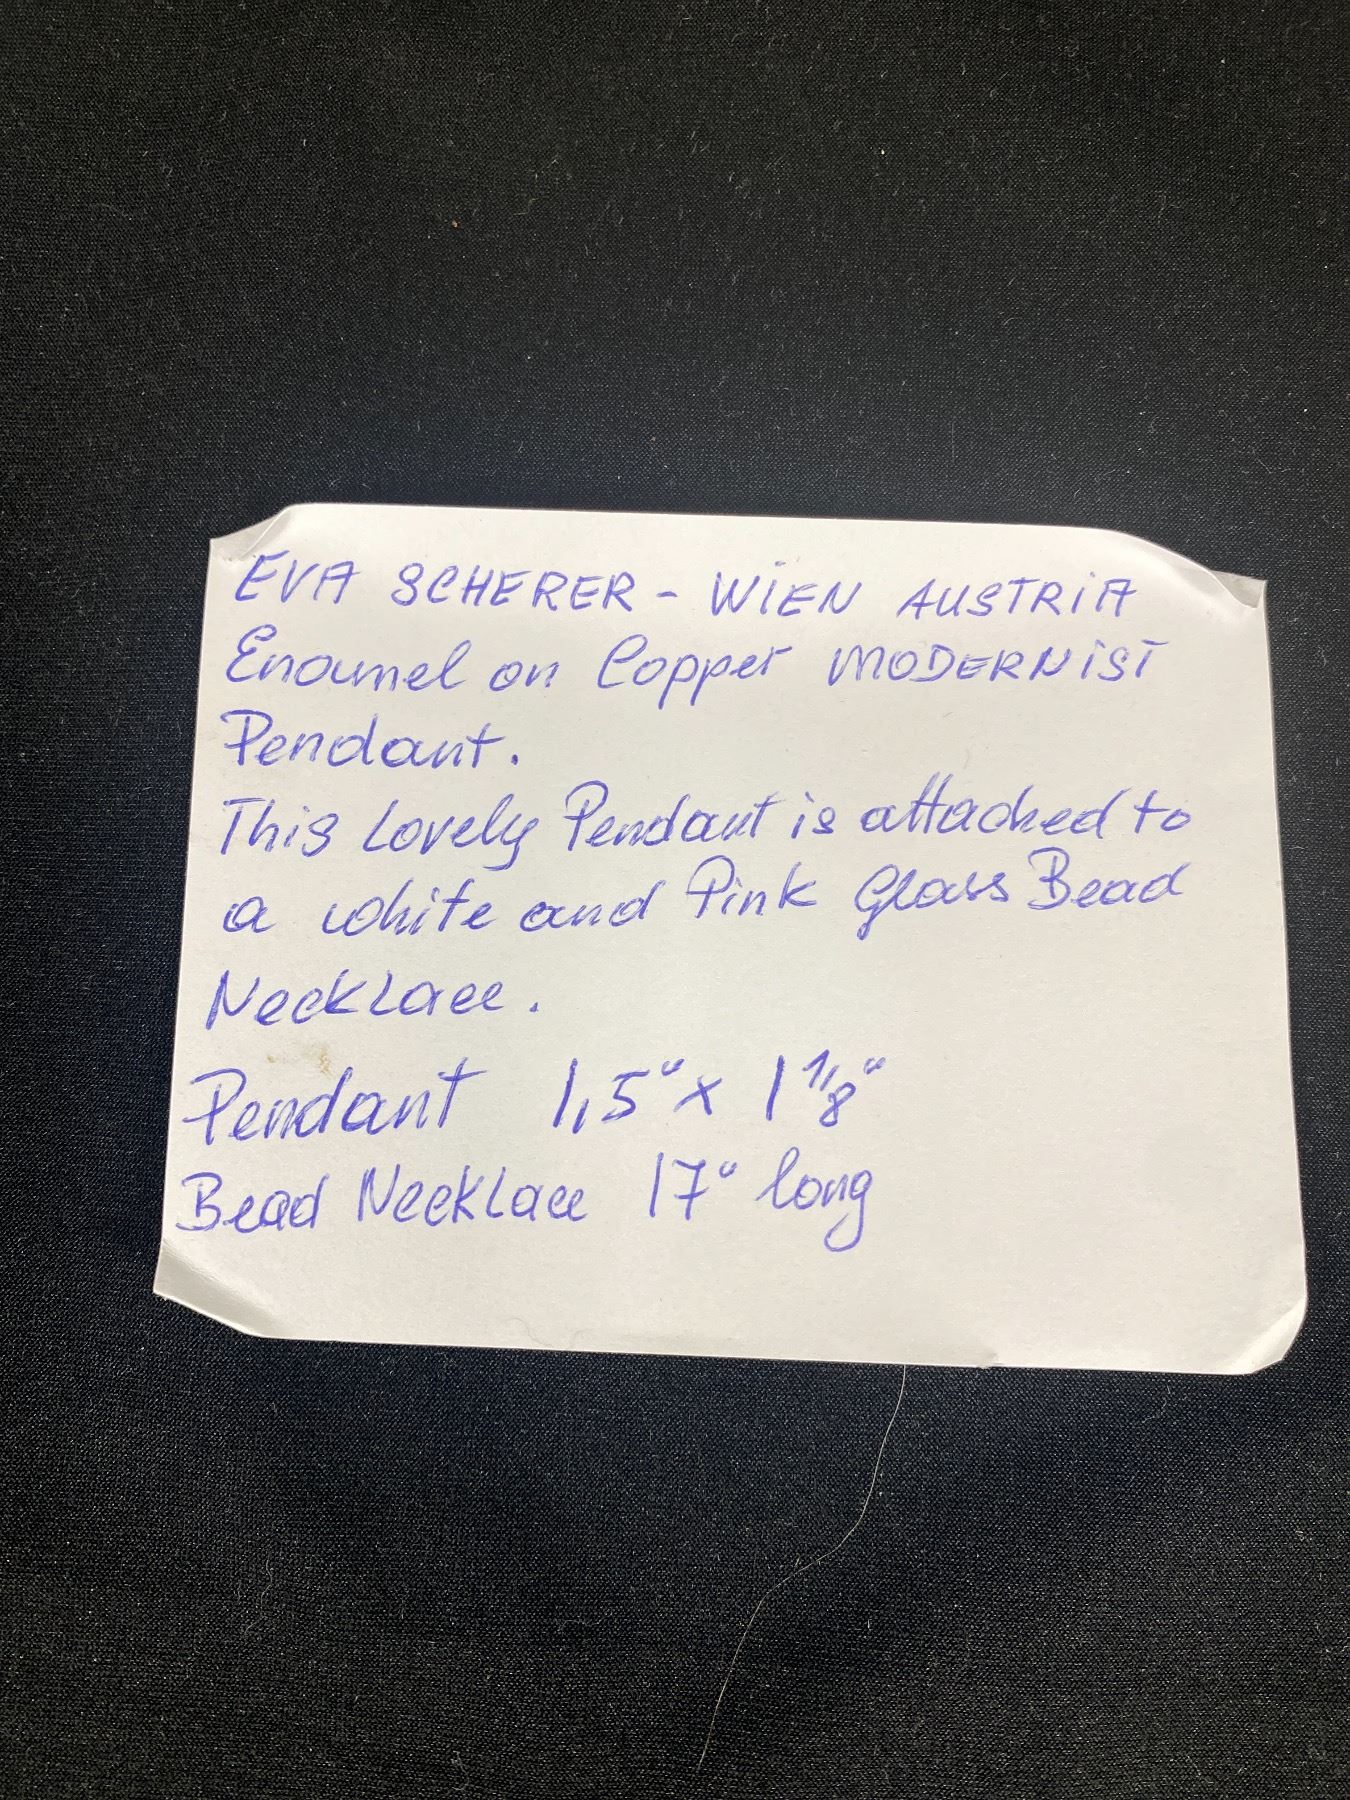 EVA SCHERER - WiEN AUSTRiA
Enamel on Copper MODERNiST
Pendant.
This Lovely Pendant is attached to
a white and Pink Glass Bead
Necklace.
Pendant 1,5" x 1 1/8"
Bead Necklace 17" long